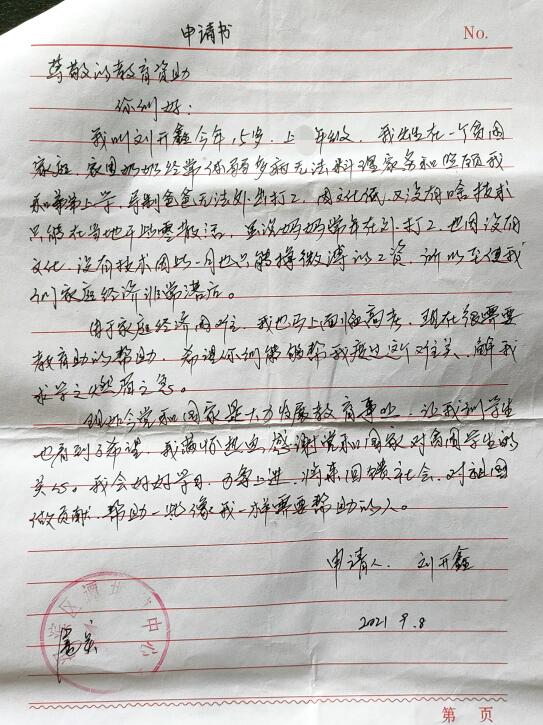 申请书
No.
尊敬的教育资助
你们好：
我叫刘开鑫今年15岁.上 年级.我出生在一个贫困
家庭.家因奶奶经常体弱多病无法料理家务和照顾我
和弟弟上学.导制爸爸无法外出打工.因文化低.又没有啥技术
只能在当地干些零散活.虽说妈妈常年在外打工.也因没有
文化.没有技术因此一月也只能挣微薄的工资.所以至使我
们家庭经济非常落后。
由于家庭经济困难.我也马上面临高考.现在很需要
教育助的帮助.希望你们能够帮我度过这个难关.解我
求学之燃眉之急。
现如今党和国家是大力发展教育事业.让我们学生
也看到了希望.我满怀热血感谢党和国家对贫困学生的
关心。我会好好学习.力争上进.将来回馈社会.对祖国
做贡献.帮助一些像我一样需要帮助的人。
申请人. 刘开鑫
2021 9.8
属实
第 页